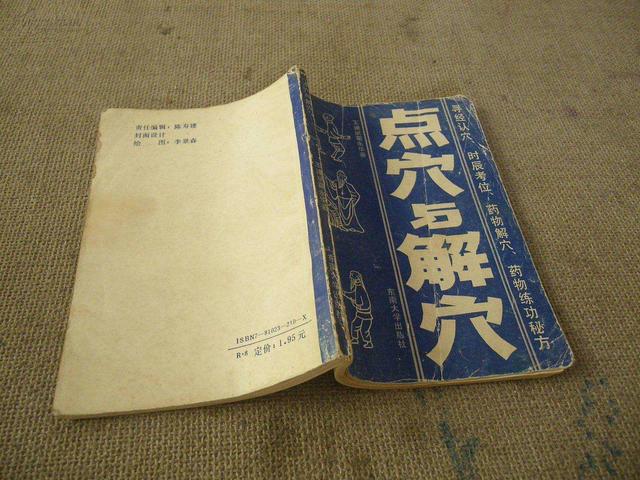 点穴与解穴
寻经认穴、时辰考位、药物解穴、药物练功秘方
东南大学出版社
责任编辑：陈寿建
封面设计
绘 图：李景森
ISBN7-81023-210-X
R·8 定价：1.95元